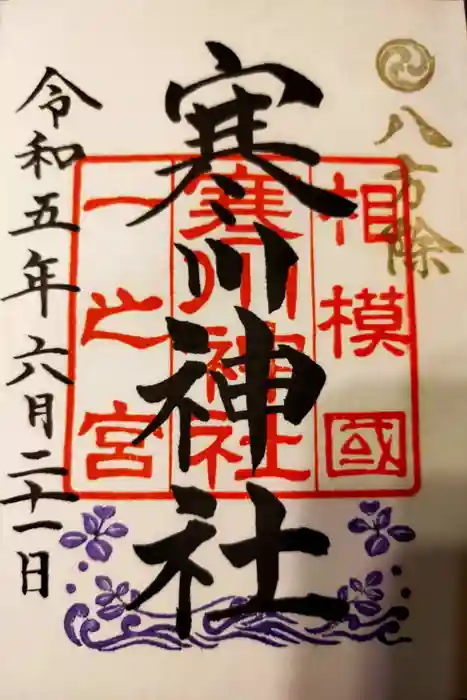 八方除
寒川神社
相模國
寒川神社
一之宮
令和五年六月二十一日